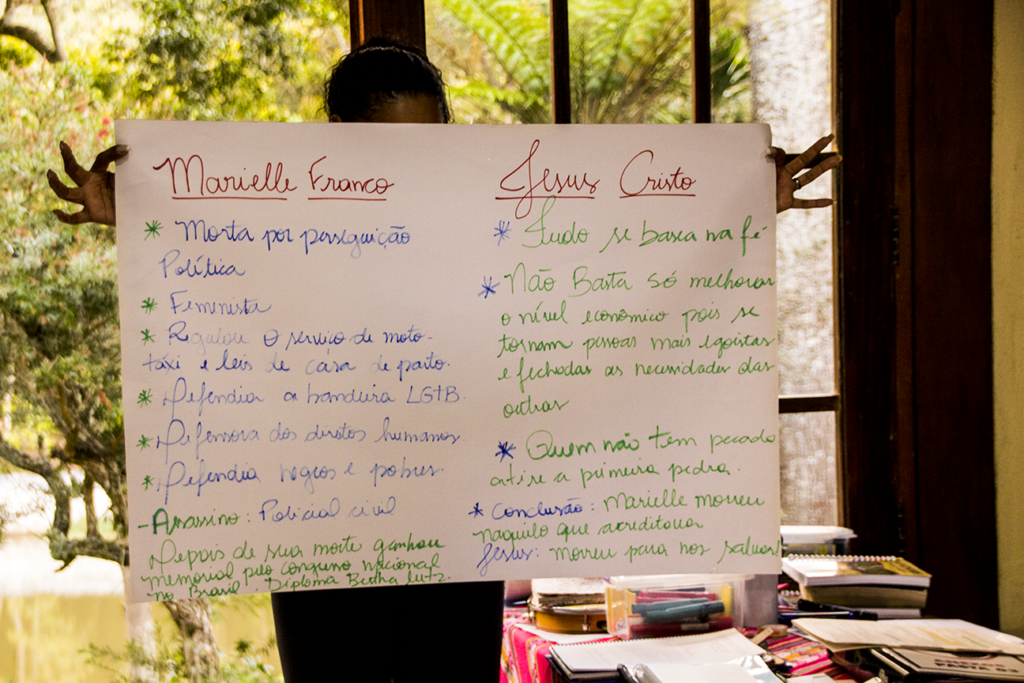 Marielle Franco
* Morta por perseguição
Política
* Feminista
* Regulou o serviço de moto-
táxi e leis de casa de parto.
* Defendia a bandeira LGTB.
* Defensora dos direitos humanos
* Defendia negros e pobres.
- Assassino: Policial civil
Depois de sua morte ganhou
memorial pelo congresso nacional
no Brasil. Diploma Bertha Lutz.
Jesus Cristo
* Tudo se basea na fé
* Não Basta só melhorar
o nível econômico pois se
tornam pessoas mais egoistas
e fechadas as necessidades das
outras
* Quem não tem pecado
atire a primeira pedra.
* Conclusão: Marielle morreu
naquilo que acreditava
Jesus: morreu para nos salvar